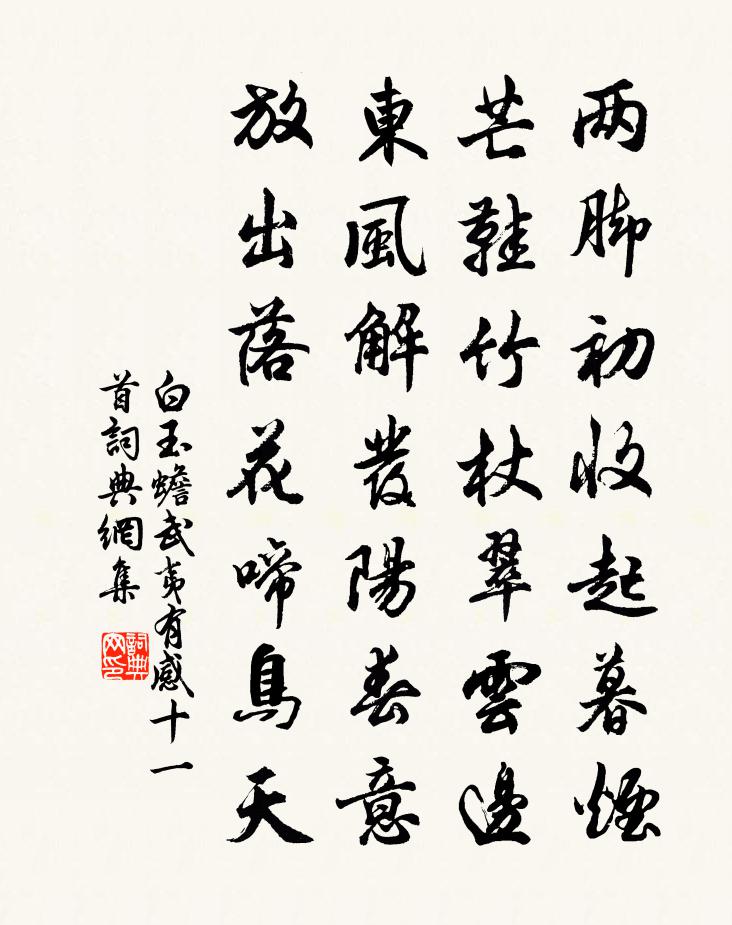 两脚初收起暮煙
芒鞋竹杖翠雲邊
東風解發陽春意
放出落花啼鳥天
白玉蟾武夷有感十一
首詞典網集
詞典网印